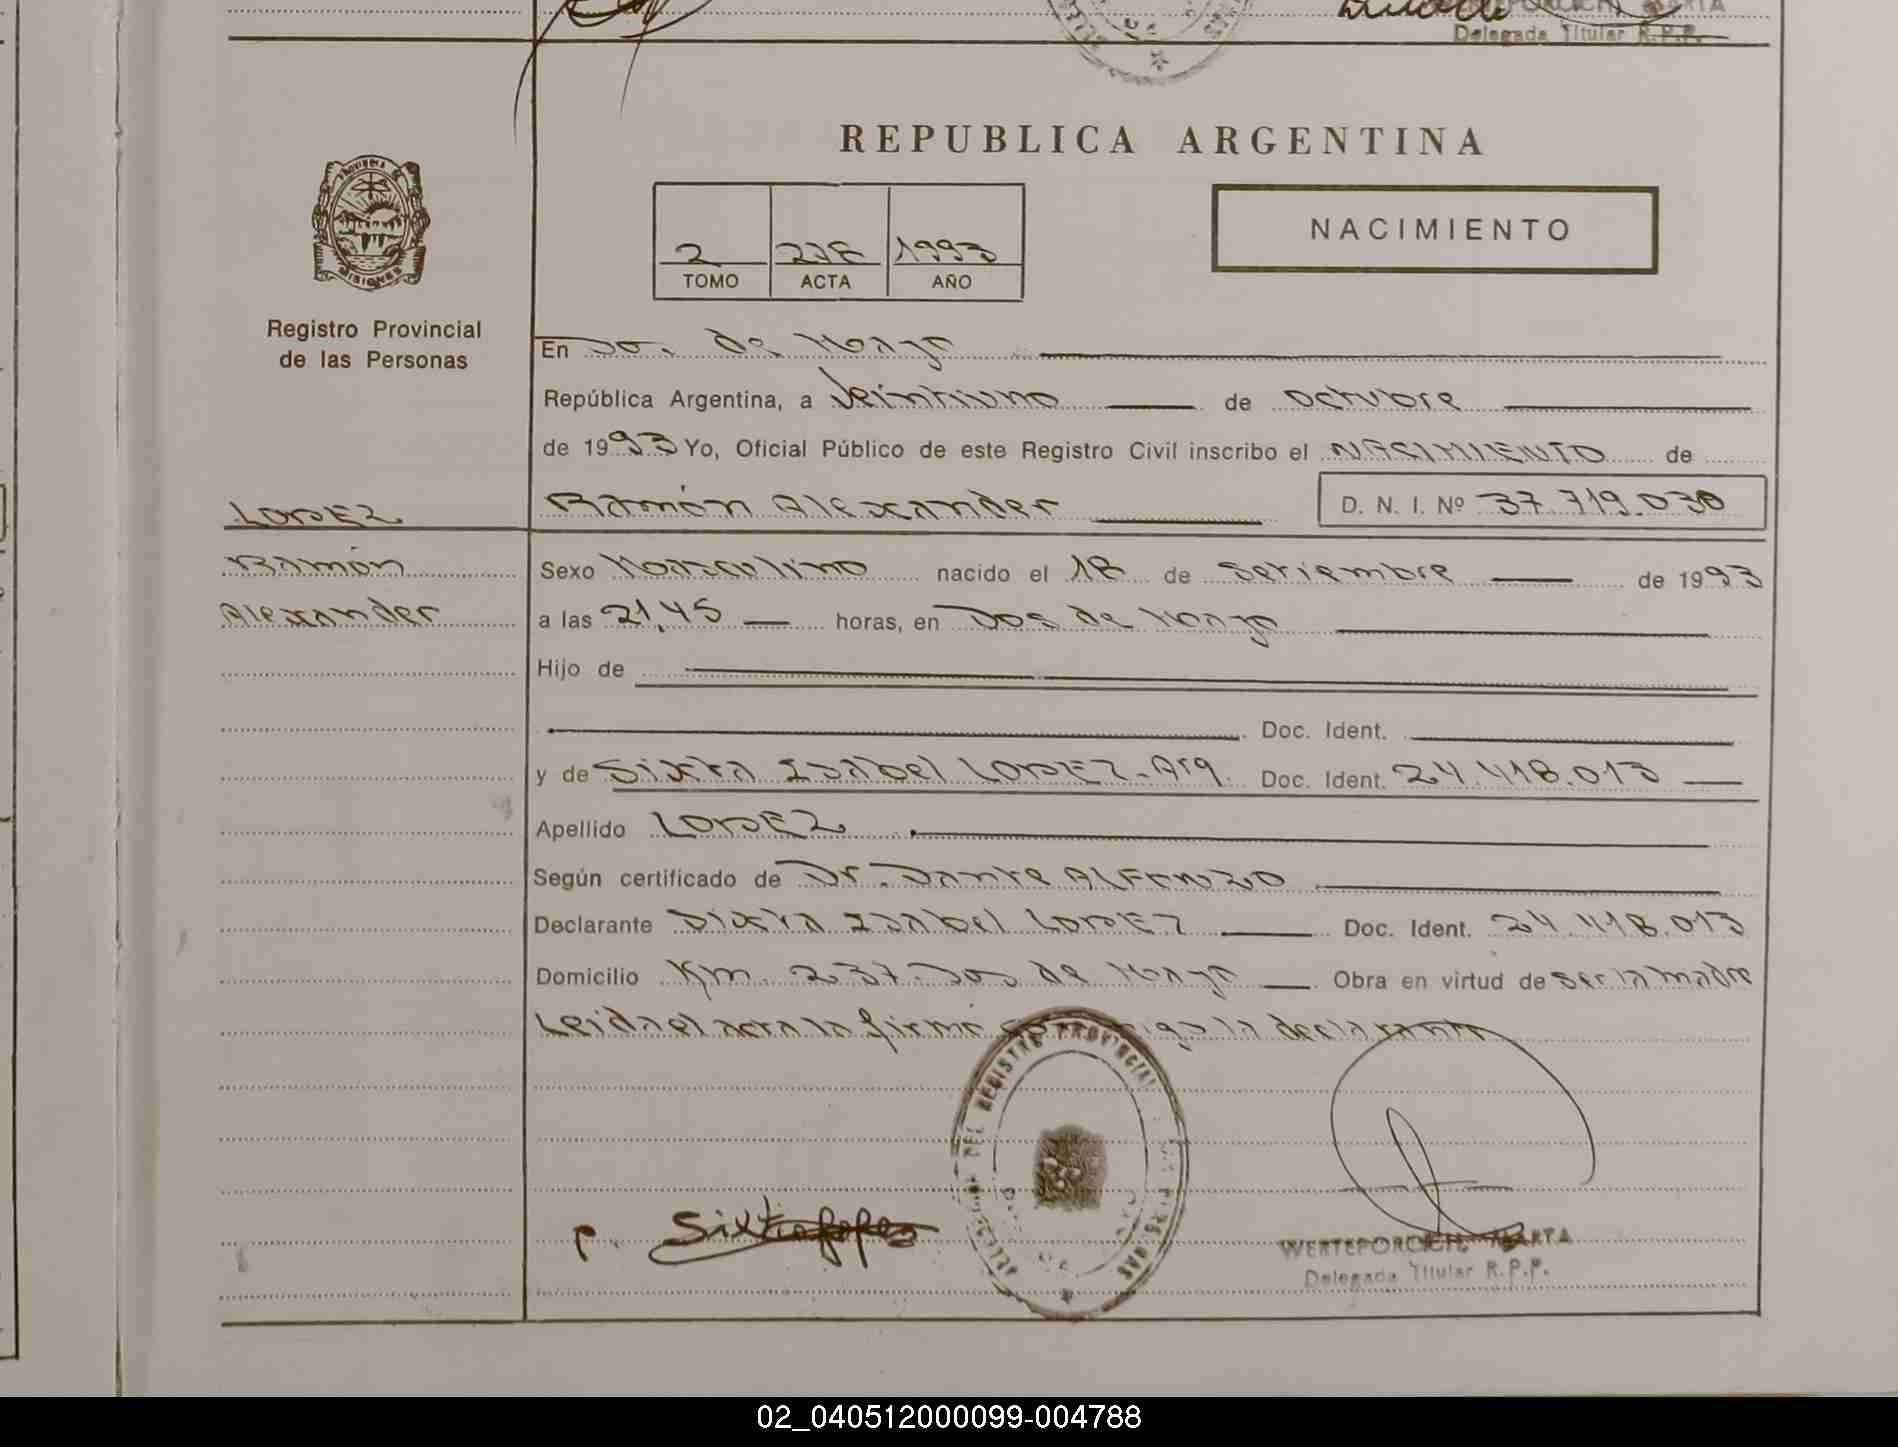 Delegada Titular R.P.P.
REPUBLICA ARGENTINA
NACIMIENTO
2 278 1993
TOMO ACTA AÑO
MISIONES
Registro Provincial
de las Personas
En Dos de Mayo
República Argentina, a Veintiuno de octubre
de 1993 Yo, Oficial Público de este Registro Civil inscribo el NACIMIENTO de
LOPEZ Ramón Alexander D. N. I. Nº 37.719.030
Ramón Sexo Masculino nacido el 18 de Setiembre de 1993
Alexander a las 21,45 horas, en Dos de Mayo
Hijo de
Doc. Ident.
y de Sixta Isabel LOPEZ-Arg. Doc. Ident. 24.418.013
Apellido LOPEZ
Según certificado de Dr. Dante ALFONZO
Declarante Sixta Isabel LOPEZ Doc. Ident. 24.418.013
Domicilio Km. 237-Dos de Mayo Obra en virtud de ser la madre
Leida el acta la firma conmigo la declarante
DEL REGISTRO PROVINCIAL
Sixta Lopez
WERTEPOROCH, MARTA
Delegada Titular R.P.P.
02_040512000099-004788